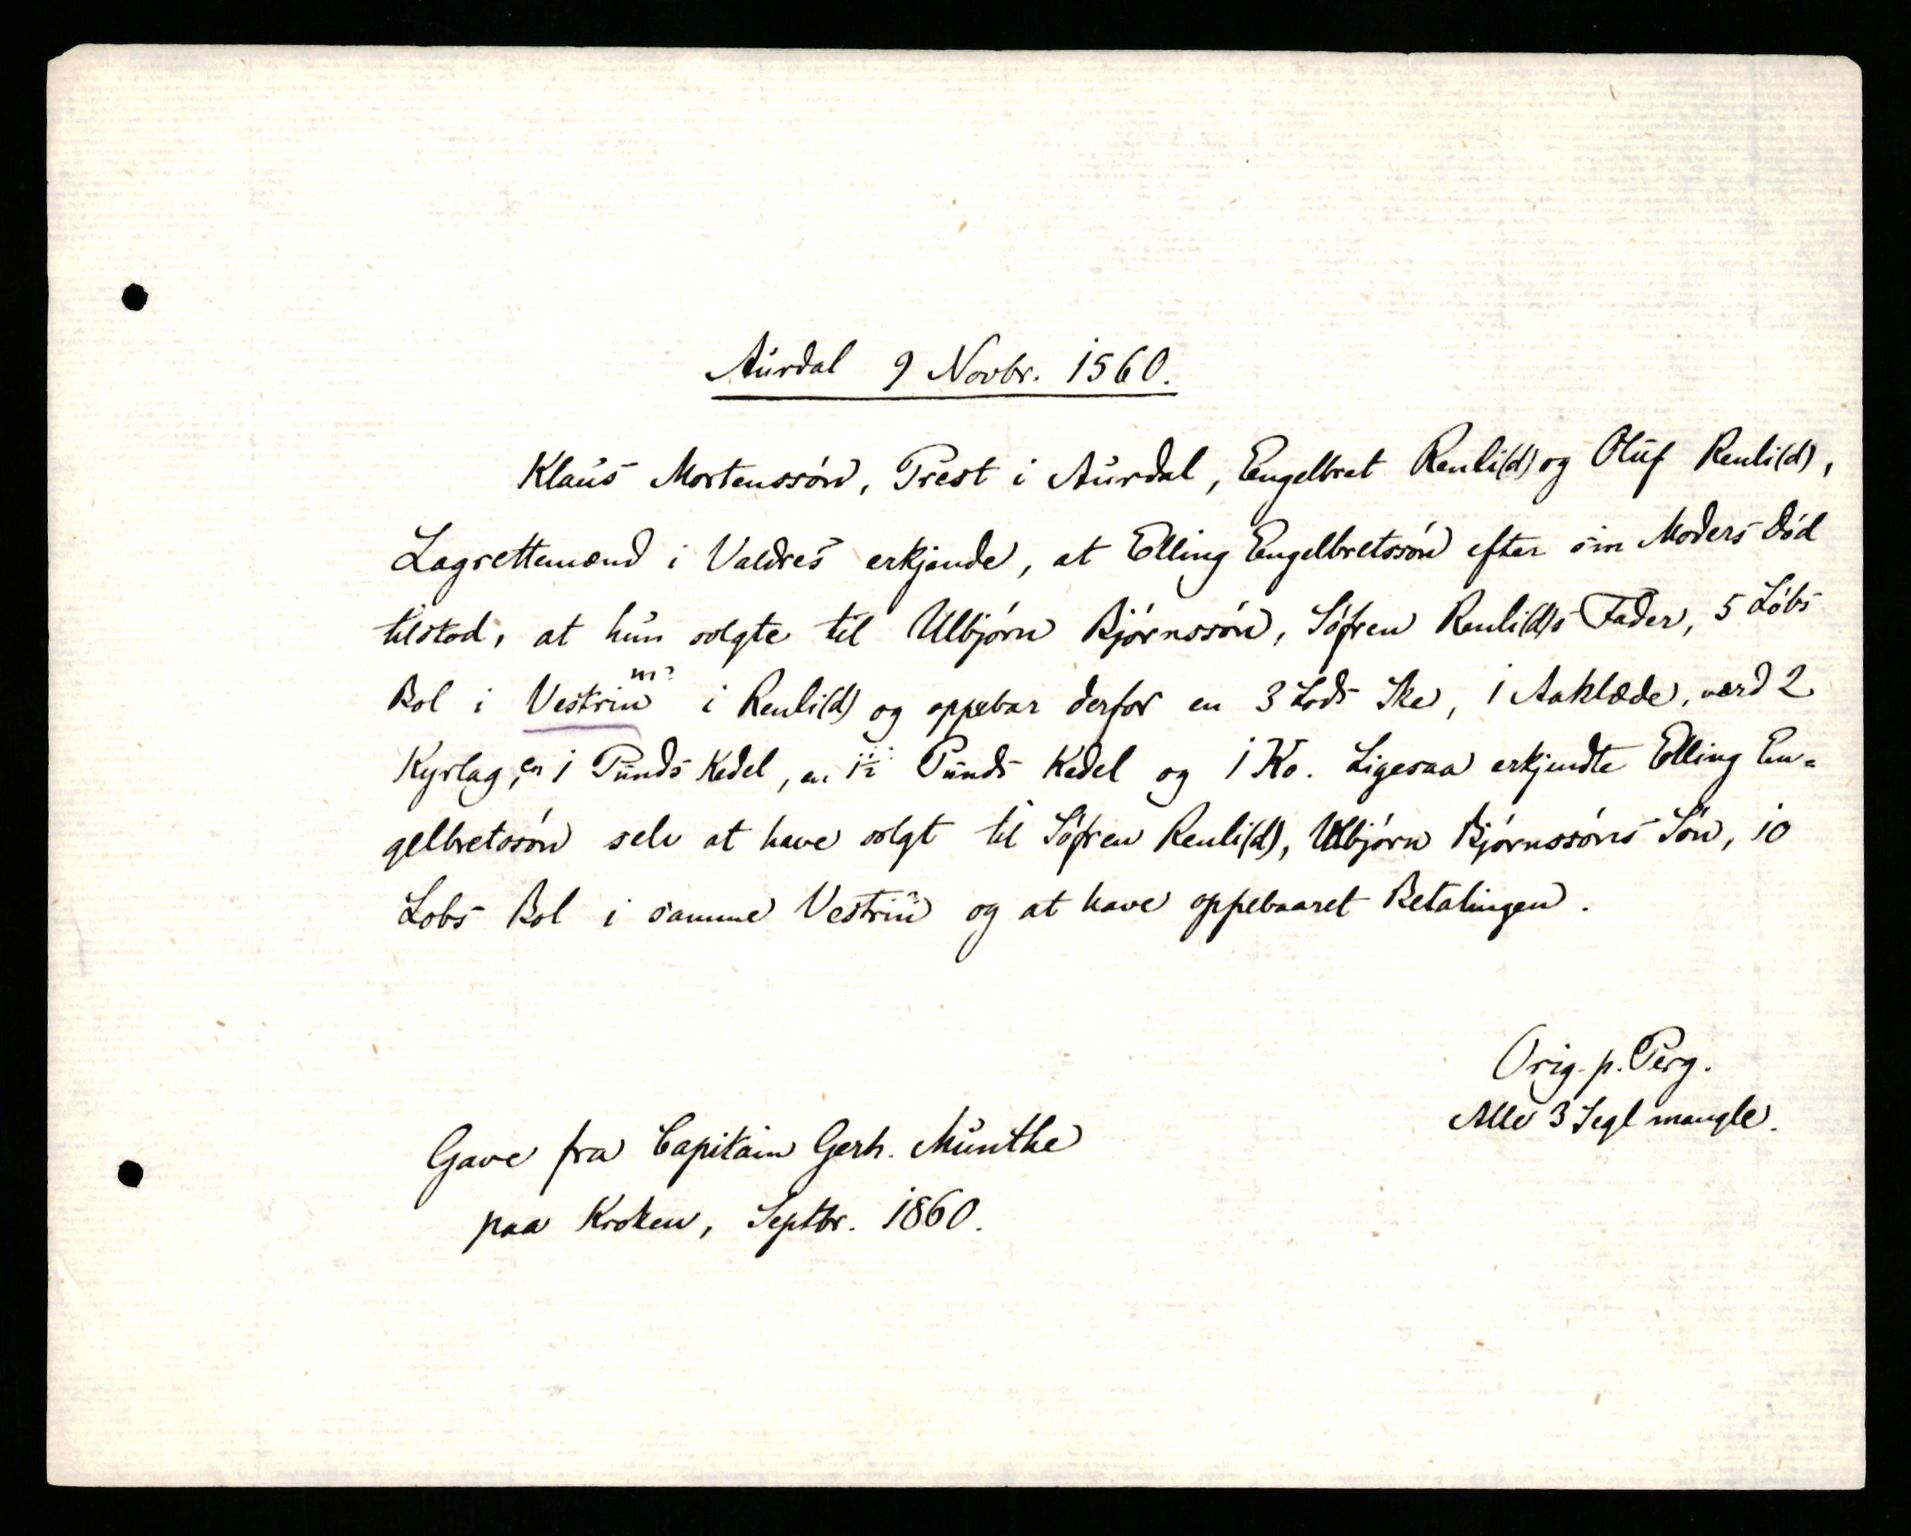 Aurdal 9 Novbr. 1560.
Klaus Mortenssøn, Prest i Aurdal, Engelbret Renli(d) og Oluf Renli(d),
Lagrettemænd i Valdres erkjende, at Elling Engelbretssøn efter sin Moders Død
tilstod, at hun solgte til Ulbjørn Bjørnssøn, Søfren Renli(d)s Fader, 5 Løbs
Bol i Vestrin i Renli(d) og oppebar derfor en 3 Lods Ske, 1 Aaklæde, værd 2
Kyrlag, en 1 Punds Kedel, en 1½ Punds Kedel og 1 Ko. Ligesaa erkjendte Elling En=
gelbretssøn selv at have solgt til Søfren Renli(d), Ulbjørn Bjørnssøns Søn, 10
Løbs Bol i samme Vestrin og at have oppebaaret Betalingen.
Orig. p. Perg.
Alle 3 Segl mangle.
Gave fra Capitain Gerh. Munthe
paa Kroken, Septbr. 1860.